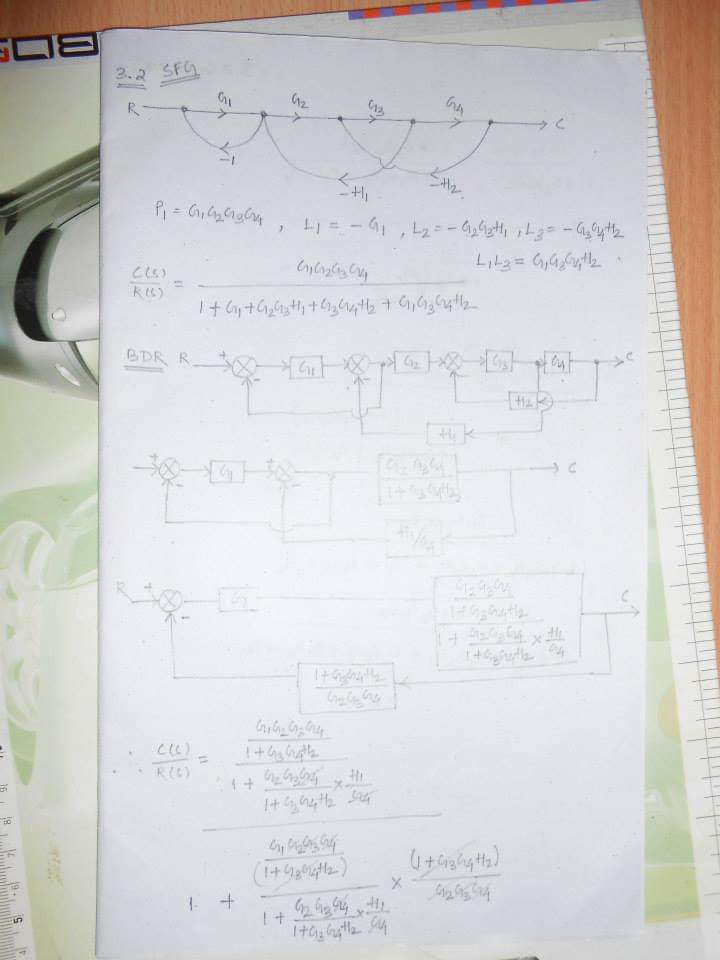 3.2 SFG
R G1 G2 G3 G4 C
-1 -H1 -H2
P1 = G1G2G3G4 , L1 = -G1 , L2 = -G2G3H1 , L3 = -G3G4H2
L1L3 = G1G3G4H2 .
C(s)/R(s) = G1G2G3G4 / 1+G1+G2G3H1+G3G4H2+G1G3G4H2
BDR R + - G1 - G2 - G3 G4 C
H2
H1
+ - G1 + - G2G3G4 / 1+G3G4H2 C
H1/G4
R + - G1 G2G3G4 / 1+G3G4H2 / 1 + G2G3G4 / 1+G3G4H2 × H1/G4 C
1+G3G4H2 / G2G3G4
∴ C(s)/R(s) = G1G2G3G4 / 1+G3G4H2 / 1 + G2G3G4 / 1+G3G4H2 × H1/G4
1 + G1G2G3G4 / (1+G3G4H2) / 1 + G2G3G4 / 1+G3G4H2 × H1/G4 × (1+G3G4H2) / G2G3G4